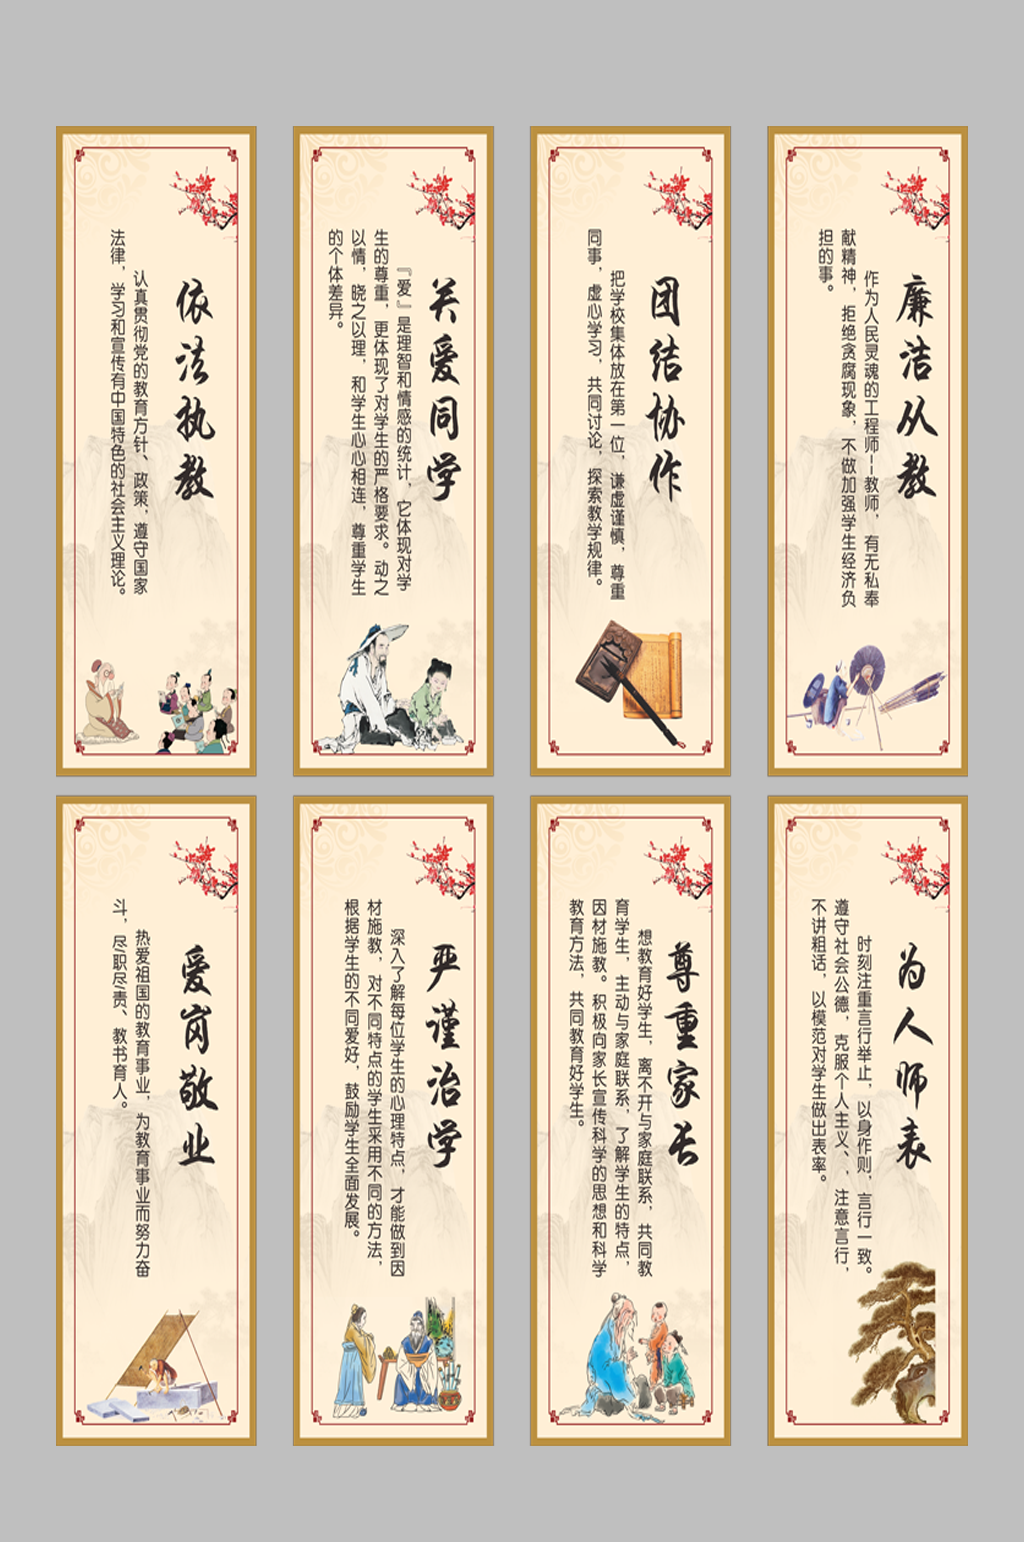 依法执教
认真贯彻党的教育方针、政策，遵守国家
法律，学习和宣传有中国特色的社会主义理论。
关爱同学
『爱』是理智和情感的统计，它体现对学
生的尊重，更体现了对学生的严格要求。动之
以情，晓之以理，和学生心心相连，尊重学生
的个体差异。
团结协作
把学校集体放在第一位，谦虚谨慎，尊重
同事，虚心学习，共同讨论，探索教学规律。
廉洁从教
作为人民灵魂的工程师--教师，有无私奉
献精神，拒绝贪腐现象，不做加强学生经济负
担的事。
爱岗敬业
热爱祖国的教育事业，为教育事业而努力奋
斗，尽职尽责、教书育人。
严谨治学
深入了解每位学生的心理特点，才能做到因
材施教，对不同特点的学生采用不同的方法，
根据学生的不同爱好，鼓励学生全面发展。
尊重家长
想教育好学生，离不开与家庭联系，共同教
育学生，主动与家庭联系，了解学生的特点，
因材施教。积极向家长宣传科学的思想和科学
教育方法，共同教育好学生。
为人师表
时刻注重言行举止，以身作则，言行一致。
遵守社会公德，克服个人主义、，注意言行，
不讲粗话，以模范对学生做出表率。